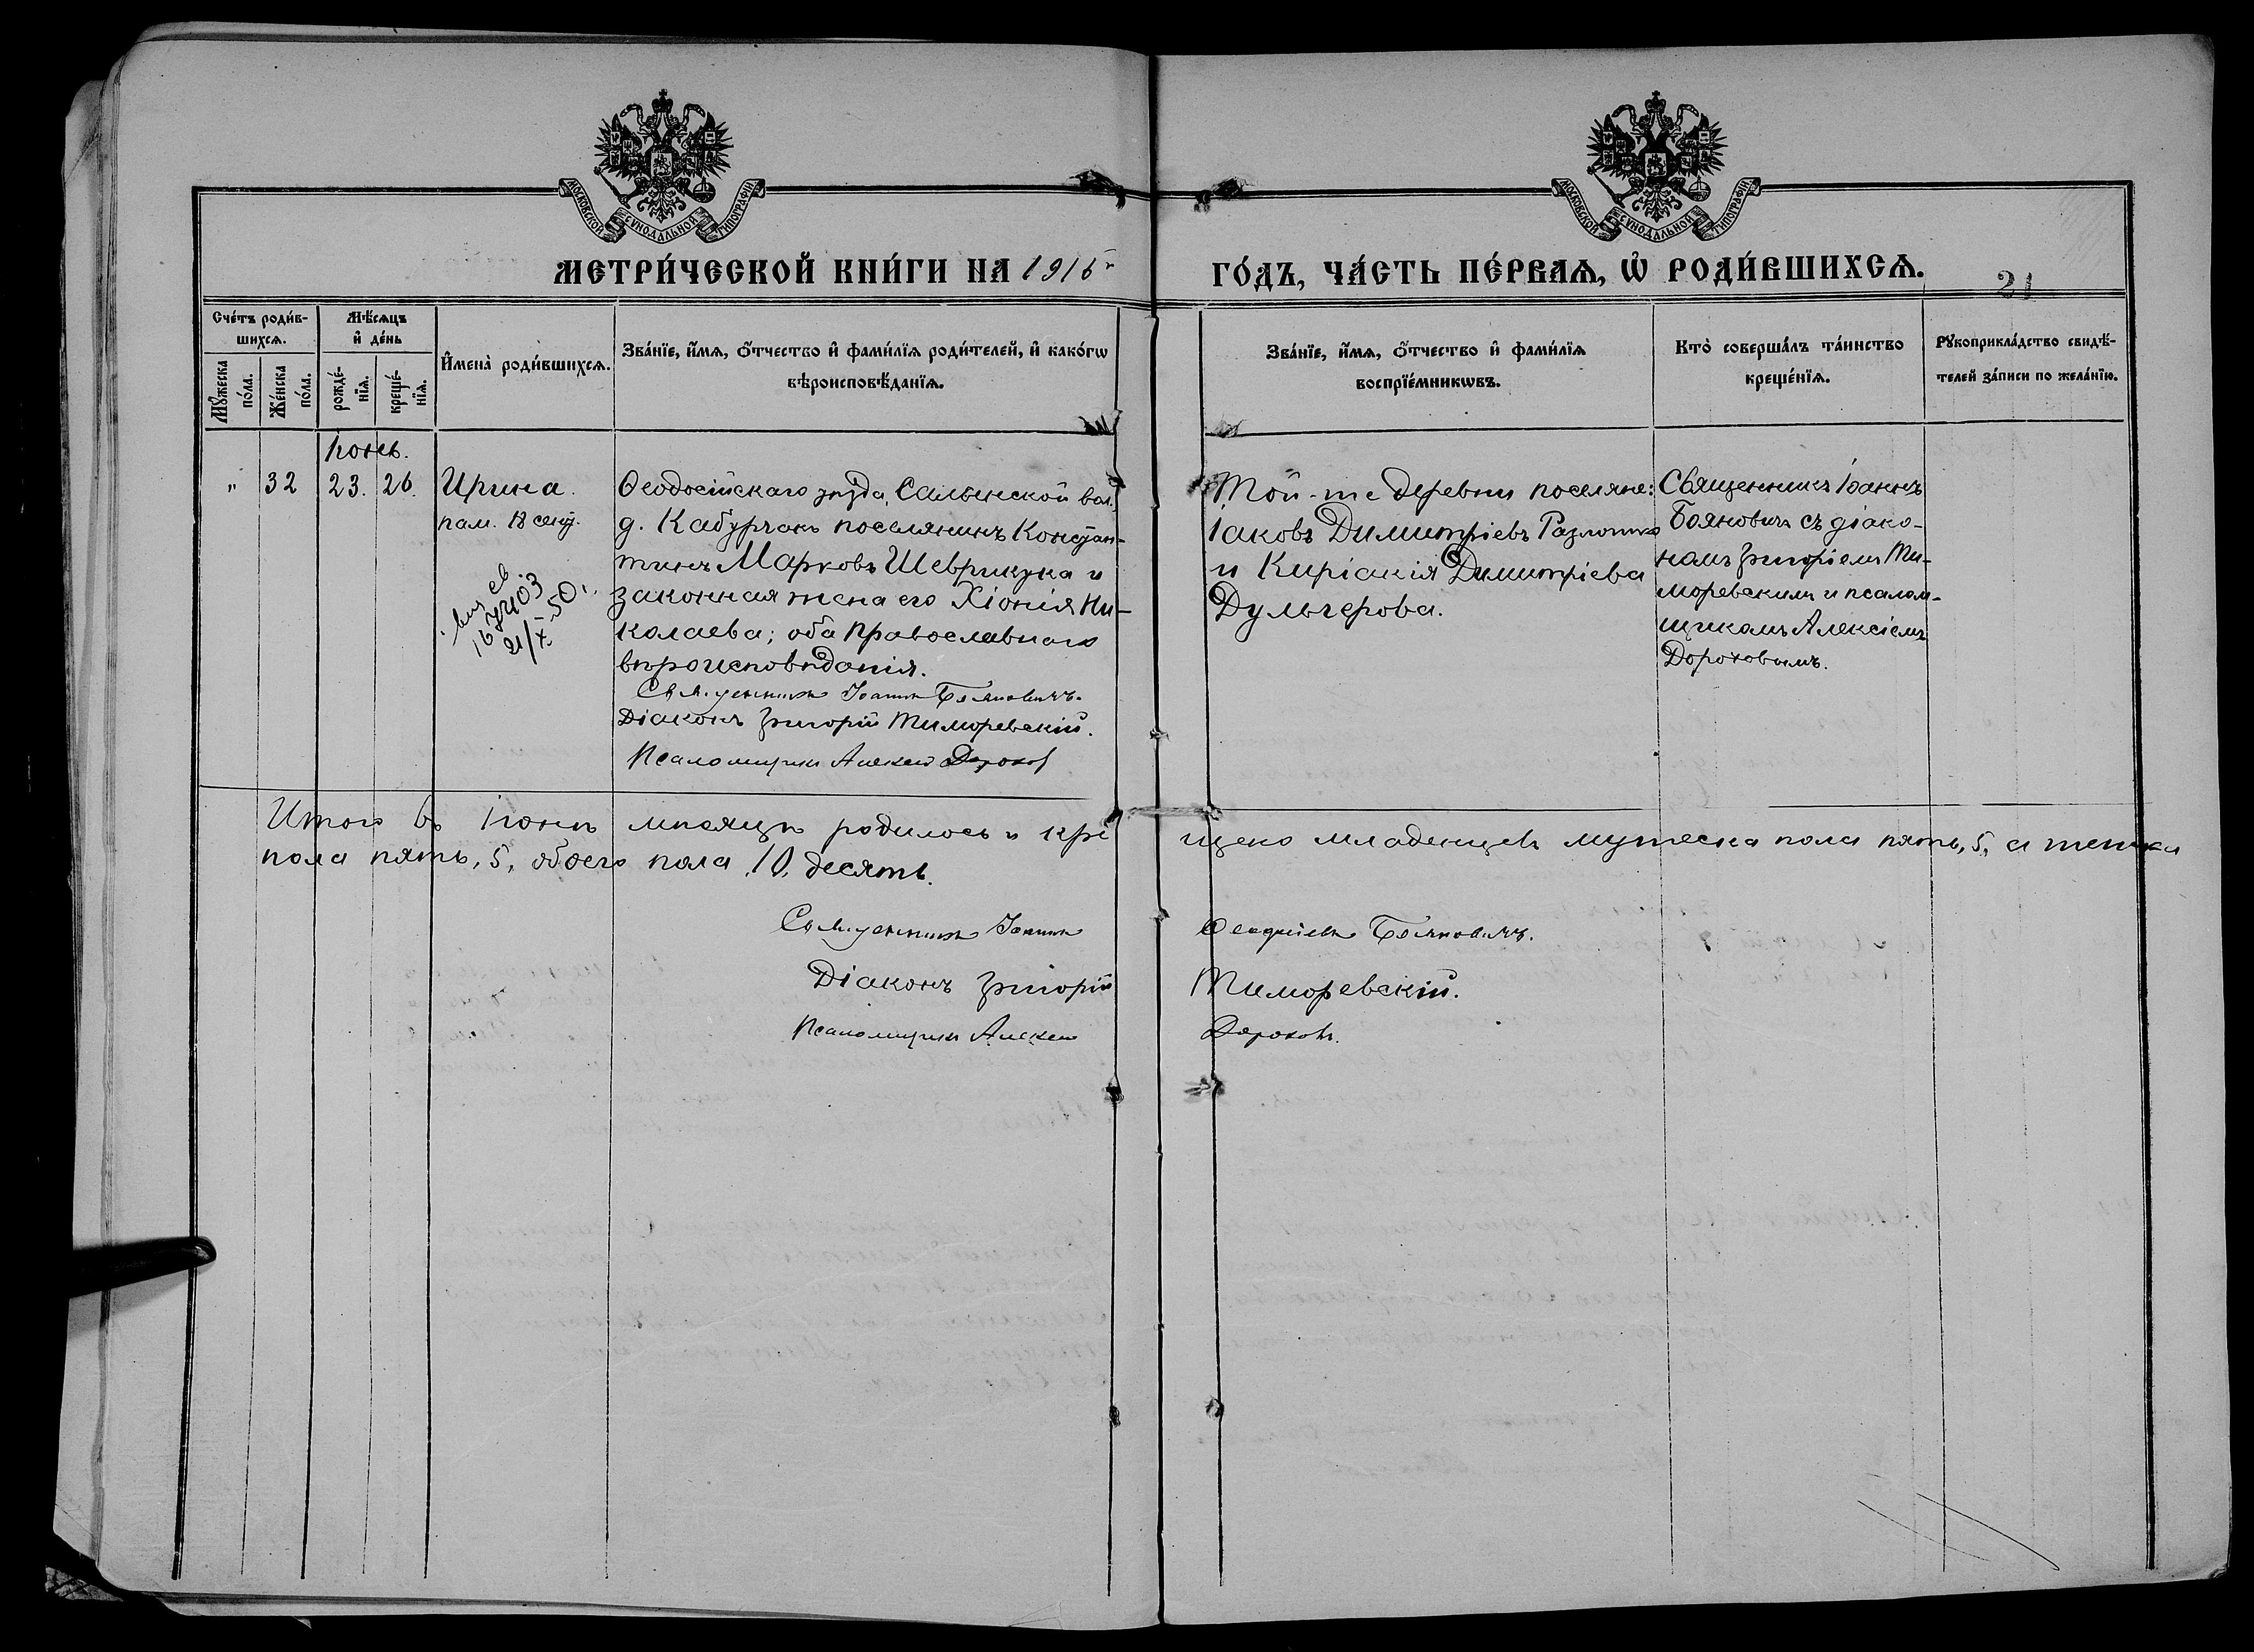 МОСКОВСКОЙ СѴНОДАЛЬНОЙ ТИПОГРАФІИ
МОСКОВСКОЙ СѴНОДАЛЬНОЙ ТИПОГРАФІИ
МЕТРИ́ЧЕСКОЙ КНИ́ГИ НА 1916 г
ГО́ДЪ, ЧА́СТЬ ПЕ́РВАѦ, Ѽ РОДИ́ВШИХСѦ.
21
Сче́тъ роди́в-
шихсѧ.
Мꙋ́жеска
по́ла.
Же́нска
по́ла.
Мѣ́сѧцъ
и҆ де́нь
рожде́-
нїѧ.
креще́-
нїѧ.
И҆мена̀ роди́вшихсѧ.
Зва́нїе, и҆́мѧ, ѻ҆́тчество и҆ фами́лїѧ роди́телей, и҆ како́гѡ
вѣроисповѣ́данїѧ.
Зва́нїе, и҆́мѧ, ѻ҆́тчество и҆ фами́лїѧ
воспрїе́мникѡвъ.
Кто̀ соверша́лъ та́инство
креще́нїѧ.
Рꙋкоприкла́дство свидѣ́-
телей за́писи по жела́нїю.
Іюнь.
„ 32 23. 26.
Ирина.
пам. 18 сент.
16
21/X-50
Ѳеодосійскаго уѣзда, Салынской вол.,
д. Кабурчакъ поселянинъ Констан-
тинъ Марковъ Шеврикука и
законная жена его Хіонія Ни-
колаева; оба православнаго
вѣроисповѣданія.
Священникъ Іоаннъ Бояновичъ.
Діаконъ Григорій Тиморевскій.
Псаломщикъ Алексей Дорохов
Той-же деревни поселяне:
Іаковъ Димитріевъ Разлошко
и Киріакія Димитріева
Дульгерова.
Священникъ Іоаннъ
Бояновичъ съ діако-
номъ Григоріемъ Ти-
моревскимъ и псалом-
щикомъ Алексіемъ
Дороховымъ.
Итого въ Іюнѣ мѣсяцѣ родилось и кре
щено младенцевъ мужеска пола пять, 5, а женска
пола пять, 5, обоего пола 10, десять.
Священникъ Іоаннъ Бояновичъ.
Діаконъ Григорій Тиморевскій.
Псаломщикъ Алексей Дороховъ.